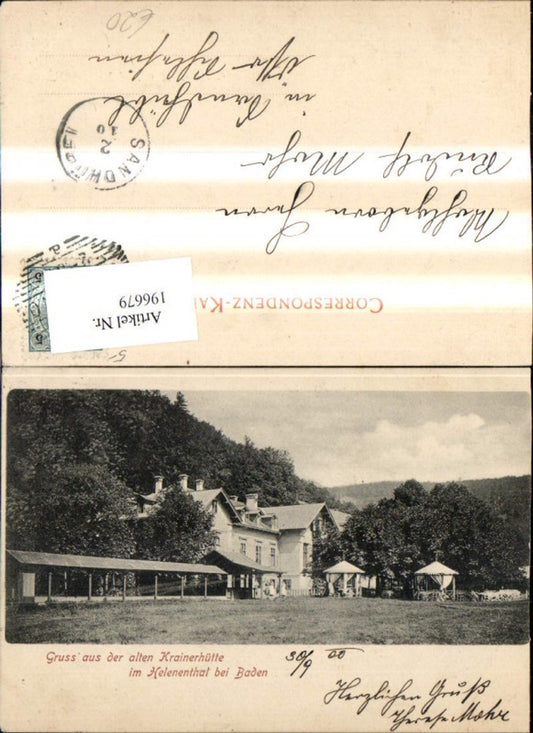 620
in Sandhübel
Rudolf Mohr
Wohlgeboren Herrn
SANDHÜBEL
2 10
CORRESPONDENZ-KA
Artikel Nr.
196679
5
Gruss aus der alten Krainerhütte
im Helenenthal bei Baden
30/9 00
Herzlichen Gruß
Therese Mohr